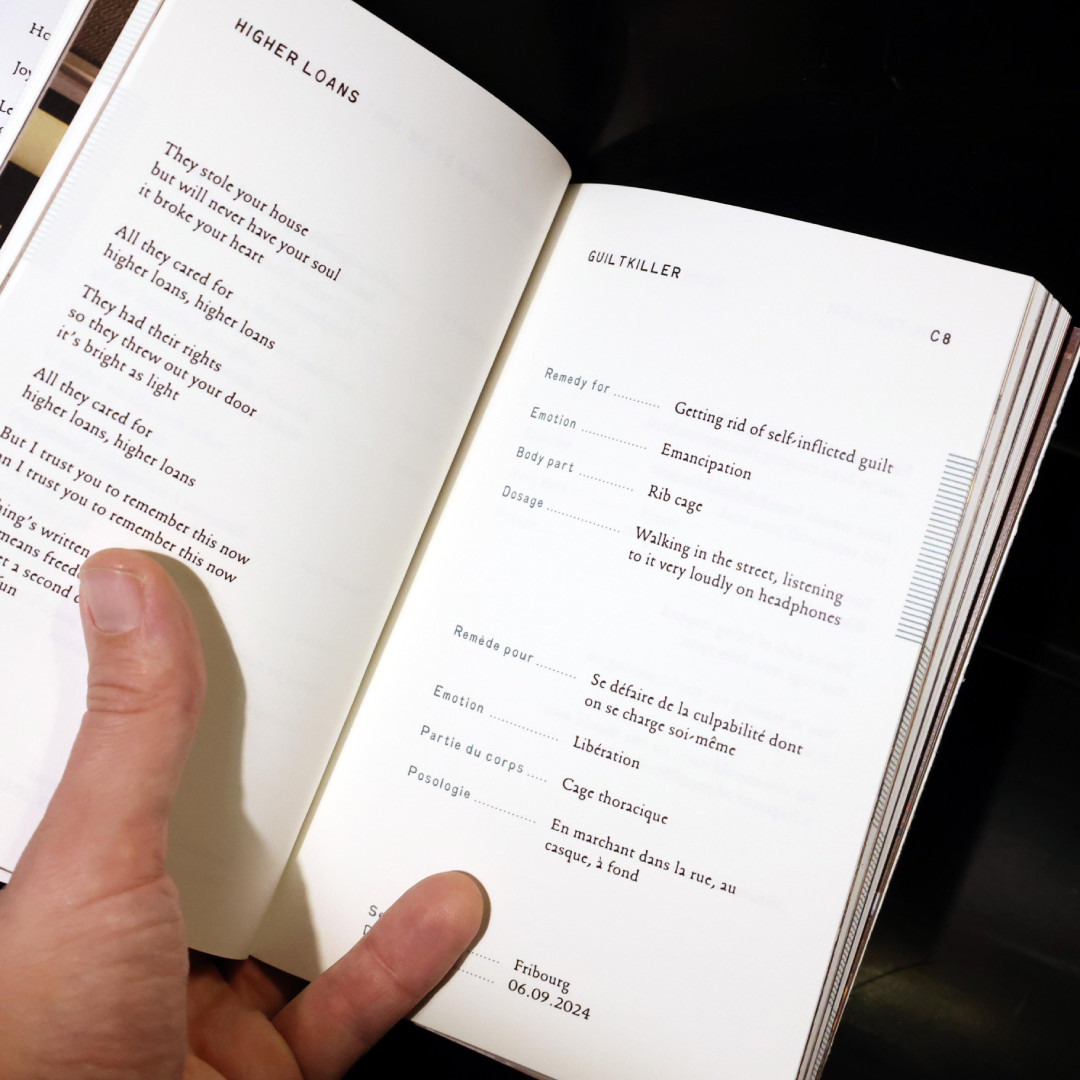 Ho
Joy
Le
HIGHER LOANS
They stole your house
but will never have your soul
it broke your heart
All they cared for
higher loans, higher loans
They had their rights
so they threw out your door
it's bright as light
All they cared for
higher loans, higher loans
But I trust you to remember this now
I trust you to remember this now
written
means
a second
GUILTKILLER
C8
Remedy for .......... Getting rid of self-inflicted guilt
Emotion .............. Emancipation
Body part ............ Rib cage
Dosage ................ Walking in the street, listening
to it very loudly on headphones
Remède pour ........ Se défaire de la culpabilité dont
on se charge soi-même
Emotion .............. Libération
Partie du corps ..... Cage thoracique
Posologie ............. En marchant dans la rue, au
casque, à fond
Fribourg
06.09.2024